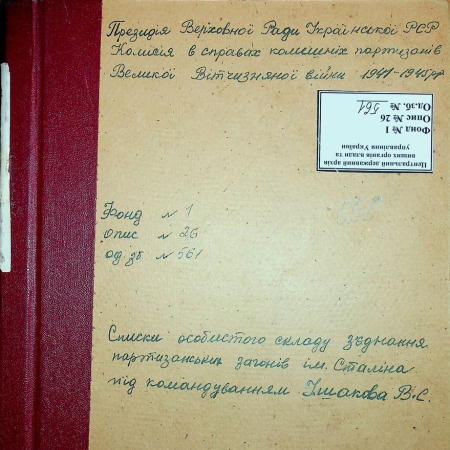 Президія Верховної Ради Української РСР
Комісія в справах колишніх партизанів
Великої Вітчизняної війни 1941-1945рр
Центральний державний архів
вищих органів влади та
управління України
Фонд № 1
Опис № 26
Од.зб. № 561
Фонд № 1
опис № 26
од. зб. № 561
Списки особистого складу зʼєднання
партизанських загонів ім. Сталіна
під командуванням Ушакова В.С.